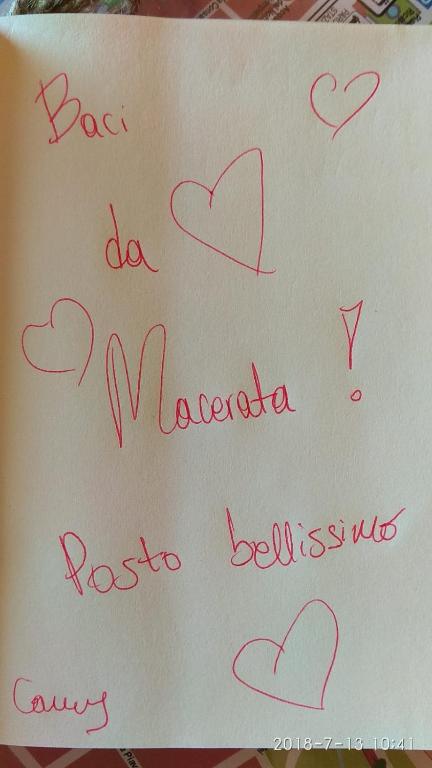 Baci
da
Macerata !
Posto bellissimo
2018-7-13 10:41